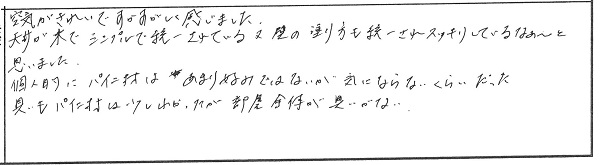 空気がきれいですがすがしく感じました。
天井が木でシンプルで統一されている又壁の塗り方も統一されスッキリしているなぁと
思いました。
個人的にパイン材はあまり好みではないが気にならないくらいだった
臭いもパイン材は少し が部屋全体が臭いがない。